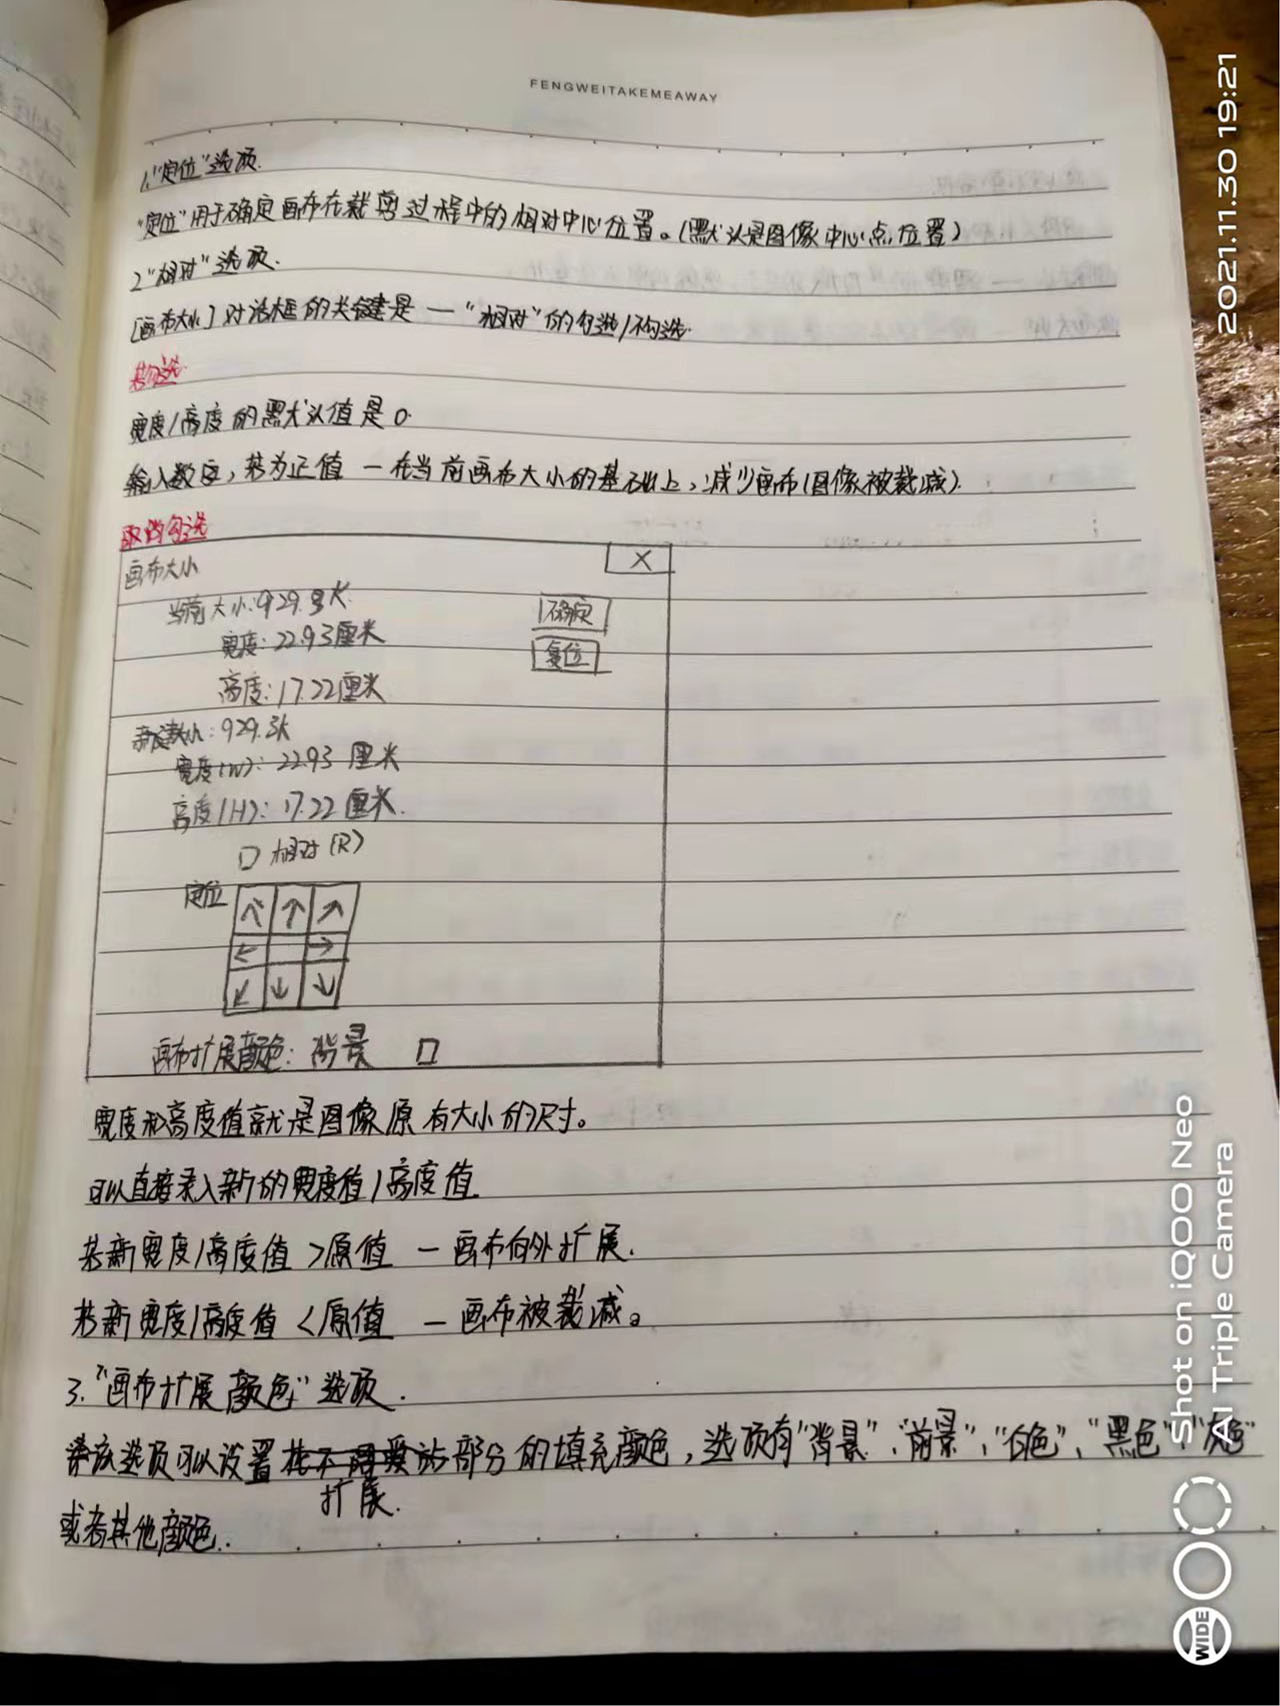 FENGWEITAKEMEAWAY
1."定位"选项.
"定位"用于确定画布在裁剪过程中的相对中心位置。(默认是图像中心点位置)
2"相对"选项.
[画布大小]对话框的关键是一"相对"的勾选/不勾选.
若勾选
宽度/高度的默认值是0.
输入数应,若为正值一在当前画布大小的基础上,减少画布(图像被裁减).
取消勾选
画布大小
X
当前大小:929.
宽度:22.93厘米
高度:17.22厘米
确定
复位
新建大小:929.
宽度(W):22.93 厘米
高度(H):17.22厘米.
相对(R)
定位
画布扩展颜色:背景
宽度和高度值就是图像原有大小的尺寸。
可以直接录入新的宽度值/高度值.
若新宽度/高度值>原值 一画布向外扩展.
若新宽度/高度值<原值 一画布被裁减。
3."画布扩展颜色"选项.
该选项可以设置部分的填充颜色,选项有"背景"、"前景"、"白色"、"黑色"、"灰色"
扩展.
或者其他颜色..
2021.11.30 19:21
Shot on iQOO Neo
AI Triple Camera
WIDE